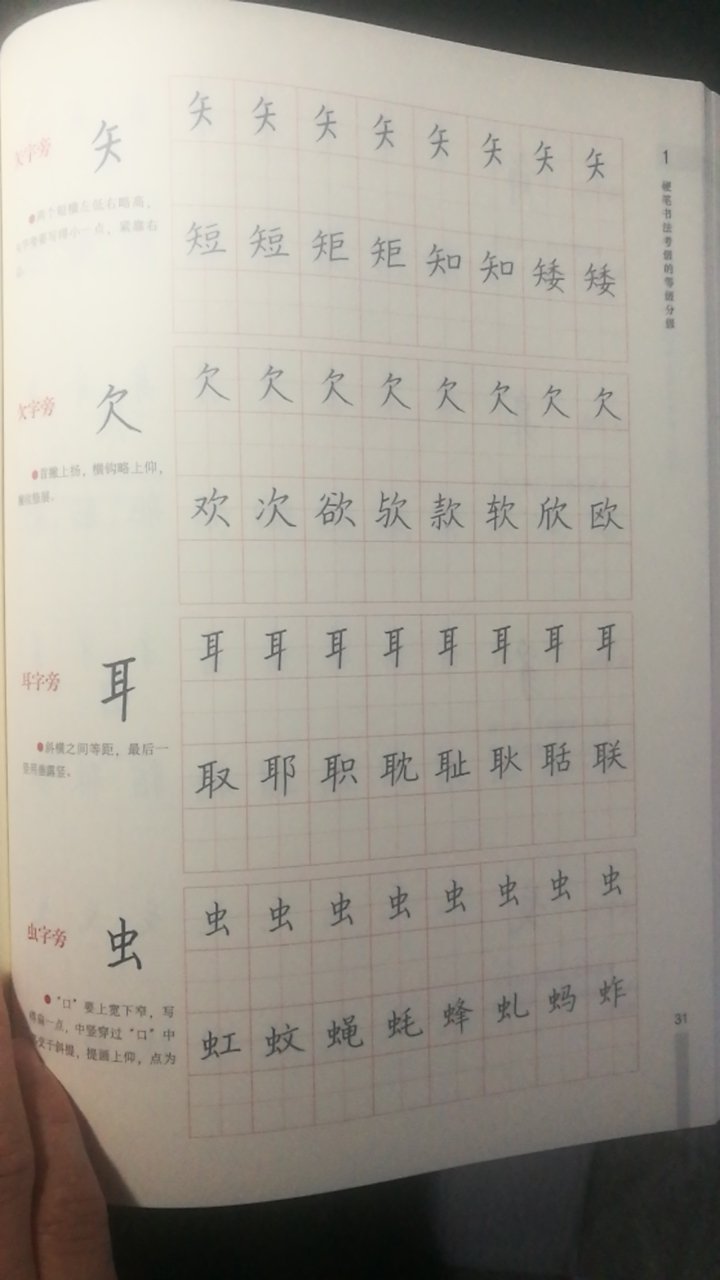 矢字旁
矢
两个短横左低右略高，
写得小一点，紧靠右
矢 矢 矢 矢 矢 矢 矢 矢
短 短 矩 矩 知 知 矮 矮
欠字旁
欠
●首撇上扬，横钩略上仰，
欠 欠 欠 欠 欠 欠 欠 欠
欢 次 欲 欤 款 软 欣 欧
耳字旁
耳
●斜横之间等距，最后一
竖用垂露竖。
耳 耳 耳 耳 耳 耳 耳 耳
取 耶 职 耽 耻 耿 聒 联
虫字旁
虫
●“口”要上宽下窄，写
扁一点，中竖穿过“口”中
交于斜提，提画上仰，点为
虫 虫 虫 虫 虫 虫 虫 虫
虹 蚊 蝇 蚝 蜂 虬 蚂 蚱
1
硬笔书法考级的等级分级
31